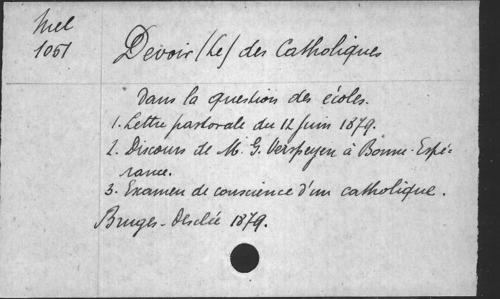 Mel
1051
Devoir (Le) des Catholiques
dans la question des écoles.
1. Lettre pastorale du 12 juin 1879.
2. Discours de M. G. Verspeyen à Bonne-Espé-
rance.
3. Examen de conscience d'un catholique.
Bruges - Desclée 1879.